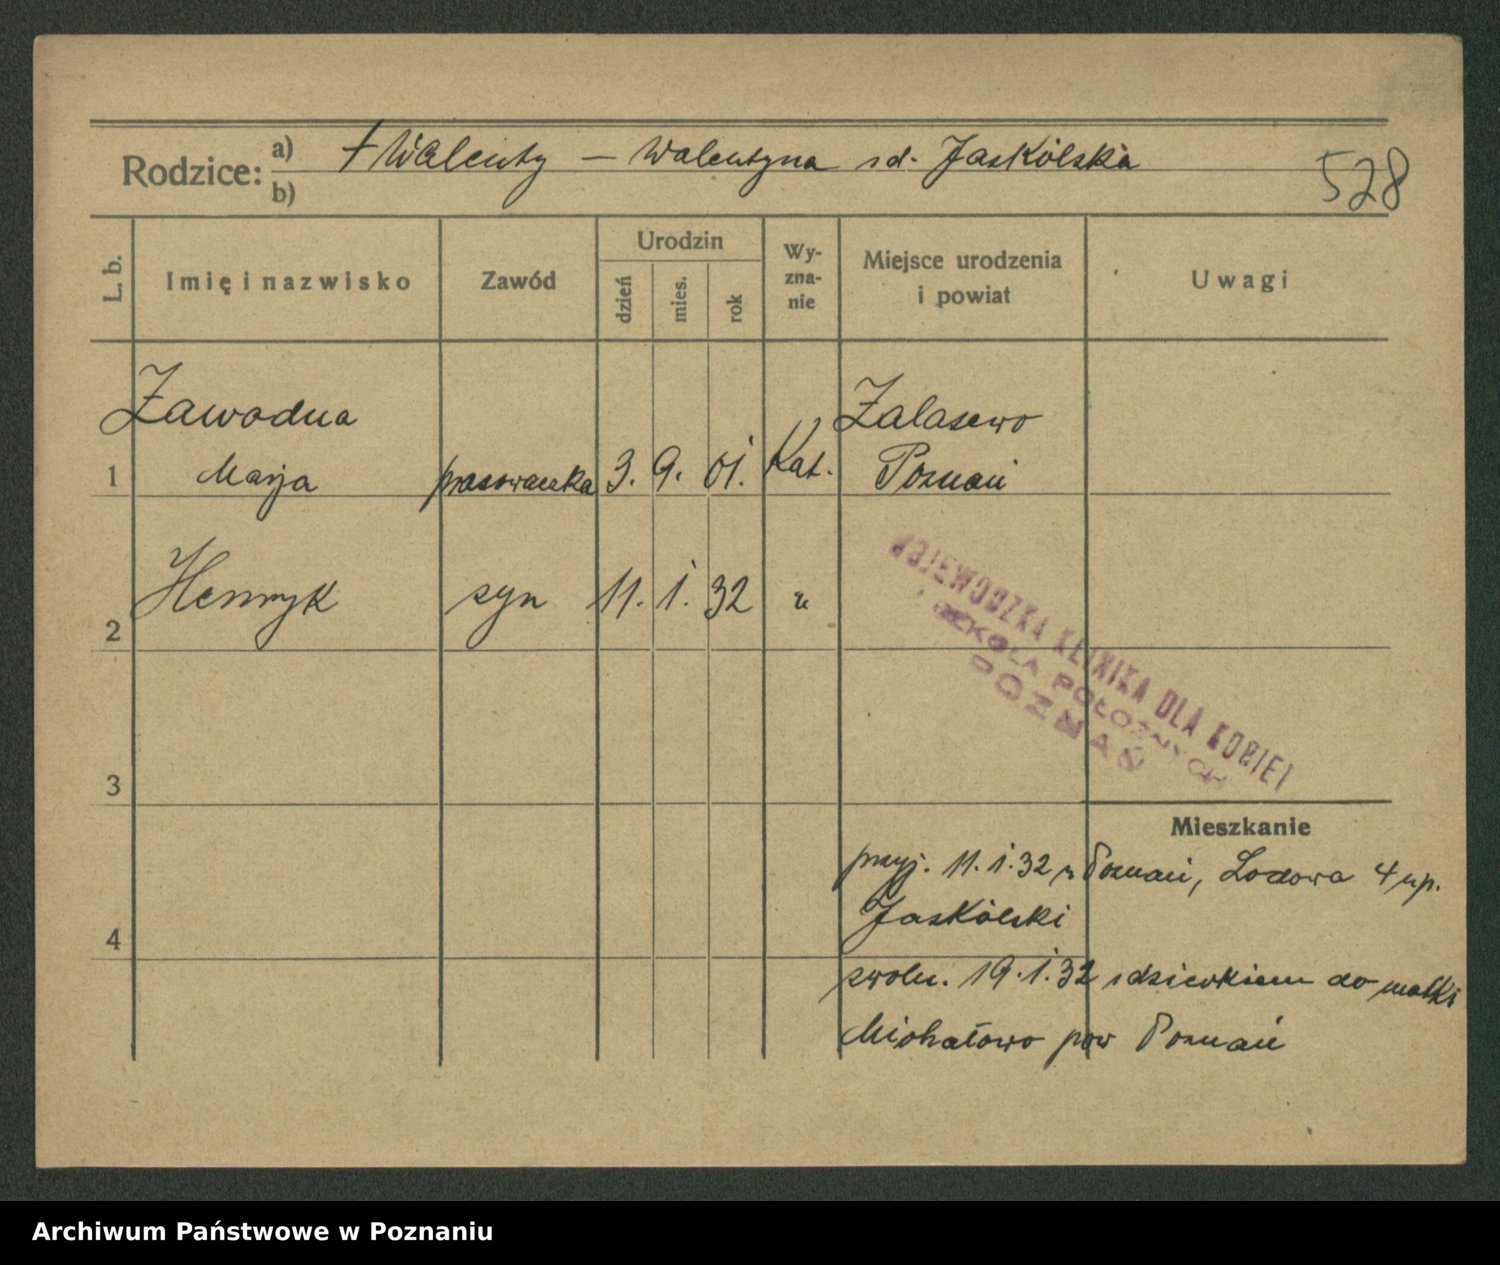 Rodzice: a) + Walenty — Walentyna zd. Jaskólska
b)
528
L. b.
Imię i nazwisko
Zawód
Urodzin
dzień
mies.
rok
Wy-
zna-
nie
Miejsce urodzenia
i powiat
Uwagi
Zawodna
Zalasewo
1 Marja prasowaczka 3. 9. 01. Kat. Poznań
2 Henryk syn 11. 1. 32 "
WOJEWÓDZKA KLINIKA DLA KOBIET
I SZKOŁA POŁOŻNYCH
POZNAŃ
3
Mieszkanie
przyj. 11.1.32 z Poznań, Lodowa 4 u p.
Jaskólski
4
zwoln. 19.1.32 z dzieckiem do matki
Michałowo pow Poznań
Archiwum Państwowe w Poznaniu